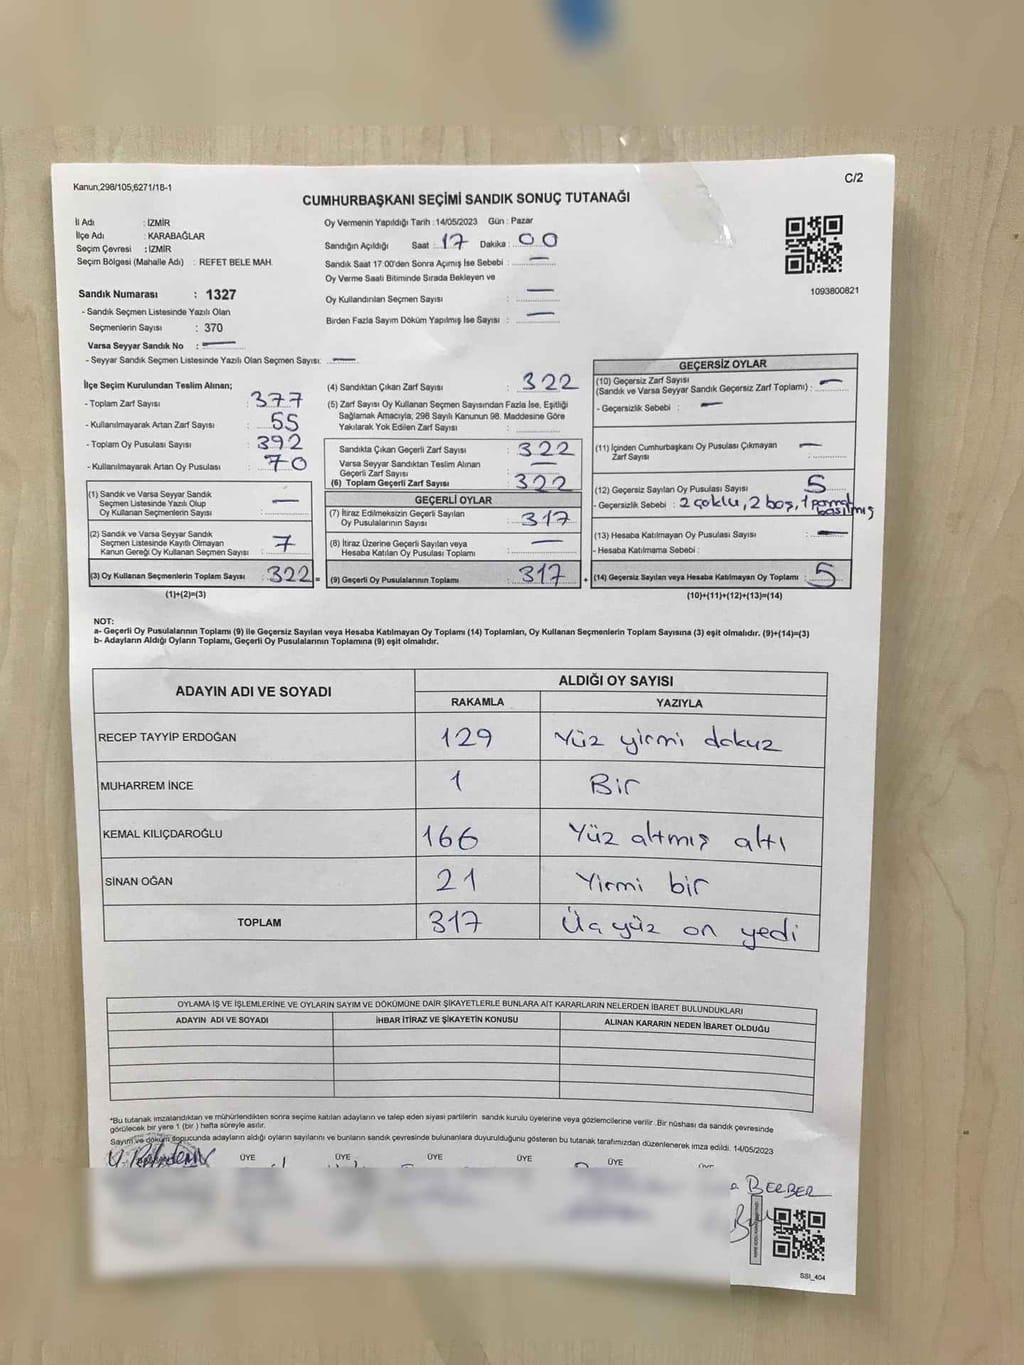 Kanun;298/105;6271/18-1
C/2
CUMHURBAŞKANI SEÇİMİ SANDIK SONUÇ TUTANAĞI
İl Adı : İZMİR
İlçe Adı : KARABAĞLAR
Seçim Çevresi : İZMİR
Seçim Bölgesi (Mahalle Adı) : REFET BELE MAH.
Sandık Numarası : 1327
- Sandık Seçmen Listesinde Yazılı Olan
Seçmenlerin Sayısı : 370
Varsa Seyyar Sandık No : —
- Seyyar Sandık Seçmen Listesinde Yazılı Olan Seçmen Sayısı: —
Oy Vermenin Yapıldığı Tarih : 14/05/2023 Gün : Pazar
Sandığın Açıldığı Saat : 17 Dakika : 00
Sandık Saat 17:00'den Sonra Açımış İse Sebebi : —
Oy Verme Saati Bitiminde Sırada Bekleyen ve
Oy Kullandırılan Seçmen Sayısı : —
Birden Fazla Sayım Döküm Yapılmış İse Sayısı : —
1093800821
İlçe Seçim Kurulundan Teslim Alınan;
- Toplam Zarf Sayısı : 377
- Kullanılmayarak Artan Zarf Sayısı : 55
- Toplam Oy Pusulası Sayısı : 392
- Kullanılmayarak Artan Oy Pusulası : 70
(1) Sandık ve Varsa Seyyar Sandık
Seçmen Listesinde Yazılı Olup
Oy Kullanan Seçmenlerin Sayısı : —
(2) Sandık ve Varsa Seyyar Sandık
Seçmen Listesinde Kayıtlı Olmayan
Kanun Gereği Oy Kullanan Seçmen Sayısı : 7
(3) Oy Kullanan Seçmenlerin Toplam Sayısı : 322 =
(1)+(2)=(3)
(4) Sandıktan Çıkan Zarf Sayısı : 322
(5) Zarf Sayısı Oy Kullanan Seçmen Sayısından Fazla İse, Eşitliği
Sağlamak Amacıyla, 298 Sayılı Kanunun 98. Maddesine Göre
Yakılarak Yok Edilen Zarf Sayısı :
Sandıkta Çıkan Geçerli Zarf Sayısı : 322
Varsa Seyyar Sandıktan Teslim Alınan
Geçerli Zarf Sayısı : —
(6) Toplam Geçerli Zarf Sayısı : 322
GEÇERLİ OYLAR
(7) İtiraz Edilmeksizin Geçerli Sayılan
Oy Pusulalarının Sayısı : 317
(8) İtiraz Üzerine Geçerli Sayılan veya
Hesaba Katılan Oy Pusulası Toplamı : —
(9) Geçerli Oy Pusulalarının Toplamı : 317 +
GEÇERSİZ OYLAR
(10) Geçersiz Zarf Sayısı
(Sandık ve Varsa Seyyar Sandık Geçersiz Zarf Toplamı) : —
- Geçersizlik Sebebi : —
(11) İçinden Cumhurbaşkanı Oy Pusulası Çıkmayan
Zarf Sayısı : —
(12) Geçersiz Sayılan Oy Pusulası Sayısı : 5
- Geçersizlik Sebebi : 2 çoklu, 2 boş, 1 parmak
basılmış
(13) Hesaba Katılmayan Oy Pusulası Sayısı : —
- Hesaba Katılmama Sebebi :
(14) Geçersiz Sayılan veya Hesaba Katılmayan Oy Toplamı : 5
(10)+(11)+(12)+(13)=(14)
NOT:
a- Geçerli Oy Pusulalarının Toplamı (9) ile Geçersiz Sayılan veya Hesaba Katılmayan Oy Toplamı (14) Toplamları, Oy Kullanan Seçmenlerin Toplam Sayısına (3) eşit olmalıdır. (9)+(14)=(3)
b- Adayların Aldığı Oyların Toplamı, Geçerli Oy Pusulalarının Toplamına (9) eşit olmalıdır.
ADAYIN ADI VE SOYADI
ALDIĞI OY SAYISI
RAKAMLA YAZIYLA
RECEP TAYYİP ERDOĞAN 129 Yüz yirmi dokuz
MUHARREM İNCE 1 Bir
KEMAL KILIÇDAROĞLU 166 Yüz altmış altı
SİNAN OĞAN 21 Yirmi bir
TOPLAM 317 Üç yüz on yedi
OYLAMA İŞ VE İŞLEMLERİNE VE OYLARIN SAYIM VE DÖKÜMÜNE DAİR ŞİKAYETLERLE BUNLARA AİT KARARLARIN NELERDEN İBARET BULUNDUKLARI
ADAYIN ADI VE SOYADI İHBAR İTİRAZ VE ŞİKAYETİN KONUSU ALINAN KARARIN NEDEN İBARET OLDUĞU
*Bu tutanak imzalandıktan ve mühürlendikten sonra seçime katılan adayların ve talep eden siyasi partilerin sandık kurulu üyelerine veya gözlemcilerine verilir. Bir nüshası da sandık çevresinde
görülecek bir yere 1 (bir ) hafta süreyle asılır.
Sayım ve döküm sonucunda adayların aldığı oyların sayılarını ve bunların sandık çevresinde bulunanlara duyurulduğunu gösteren bu tutanak tarafımızdan düzenlenerek imza edildi. 14/05/2023
ÜYE ÜYE ÜYE ÜYE ÜYE
BERBER
SSI_404